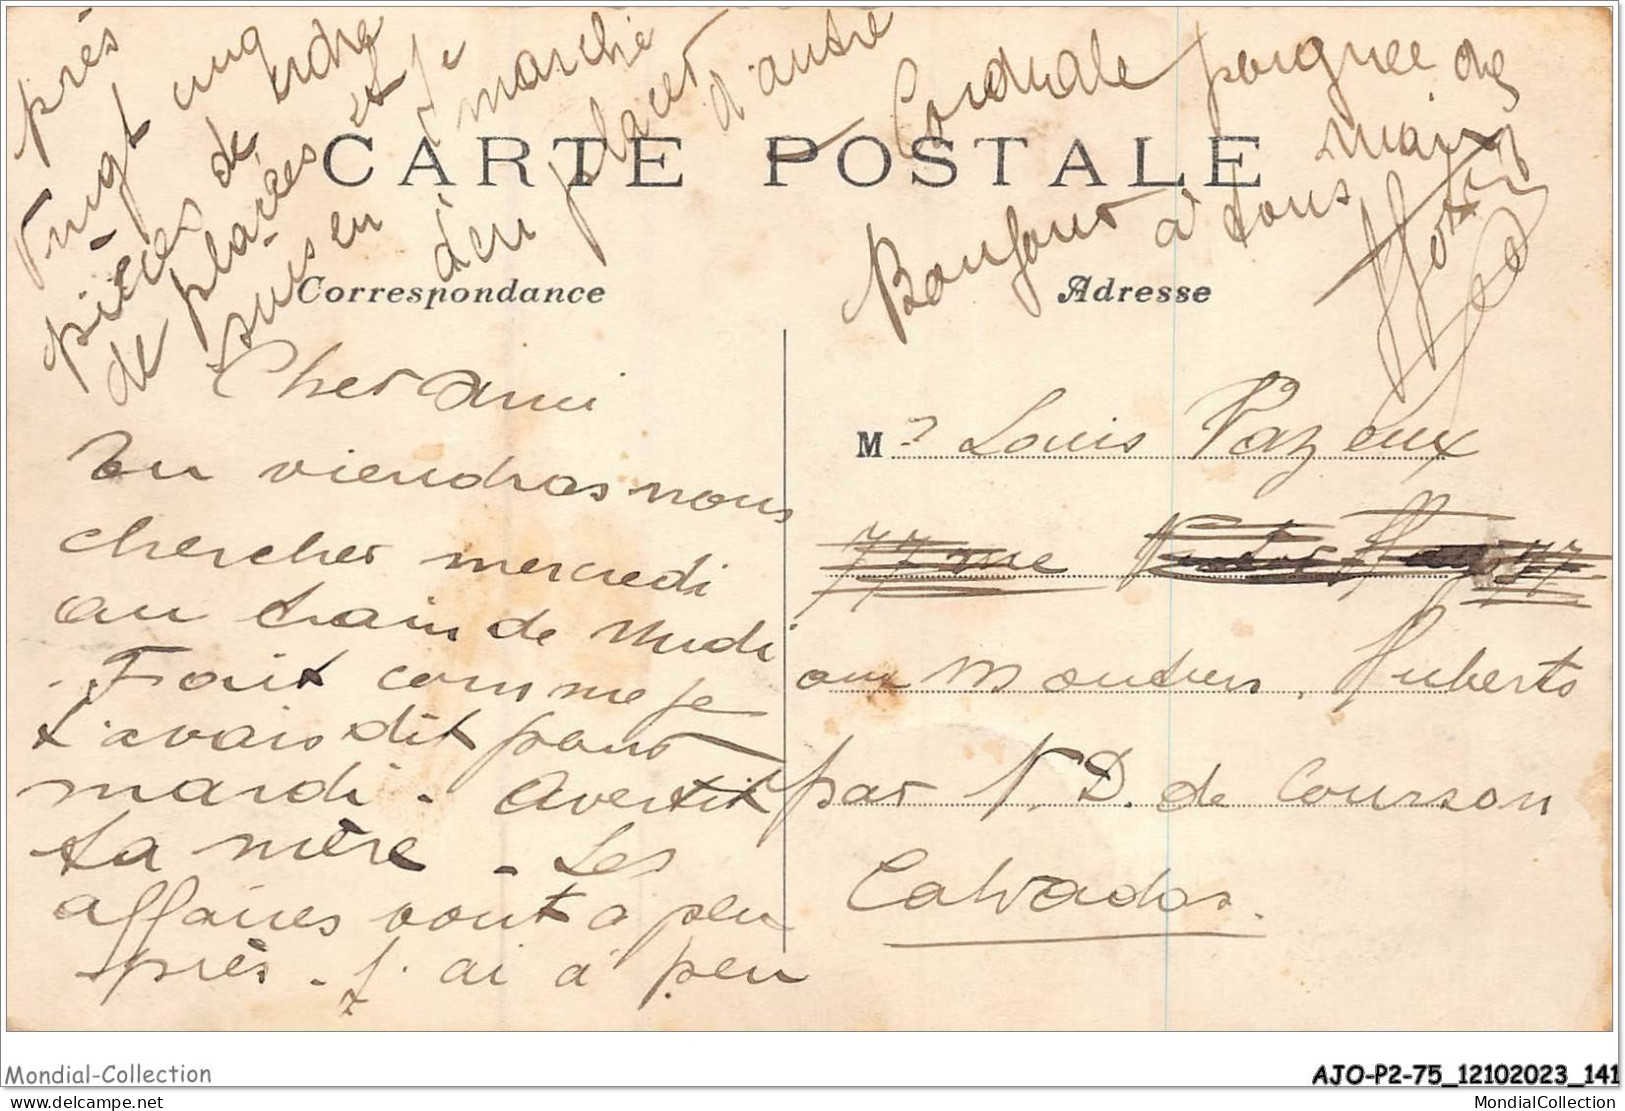 CARTE POSTALE
Correspondance
Adresse
Cher ami
Tu viendras nous
chercher mercredi
au train de Midi
. Fait comme je
t'avais dit pour
mardi - Avertit
ta mère - Les
affaires vont a peu
près - j'ai à peu
près
vingt cinq
pièces de cidre
de placées et je
suis en marché
d'en placer
d'autre
Cordiale poignée de
mains
Bonjour à tous
Mr Louis Pazeux
77 rue
au moutiers Huberts
par N. D. de Courson
Calvados.
Mondial-Collection
AJO-P2-75_12102023_141
www.delcampe.net
MondialCollection